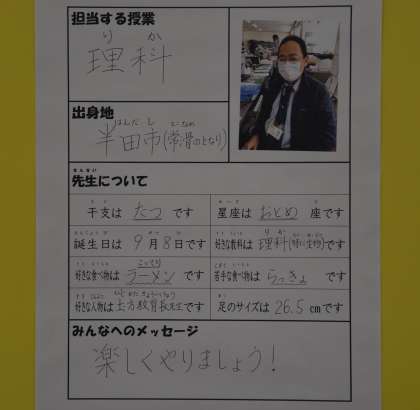 担当する授業
りか
理科
出身地
はんだし とこなめ
半田市(常滑のとなり)
せんせい
先生について
干支は たつ です
星座は おとめ 座です
誕生日は 9月8日です
好きな教科は 理科(特に生物)です
好きな食べ物は ラーメン です
苦手な食べ物は らっきょ です
好きな人物は 土方教育長先生です
足のサイズは 26.5 cmです
みんなへのメッセージ
楽しくやりましょう!